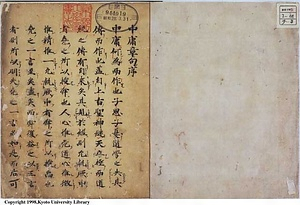 中庸章句序
中庸何為而作也子思子憂道學之失其
傳而作也蓋自上古聖神繼天立極而道
統之傳有自來矣其見於經則允執厥中
者堯之所以授舜也人心惟危道心惟微
惟精惟一允執厥中者舜之所以授禹也
堯之一言至矣盡矣而舜復益之以三言
者則所以明夫堯之一言必如是而後可
Copyright 1998,Kyoto University Library